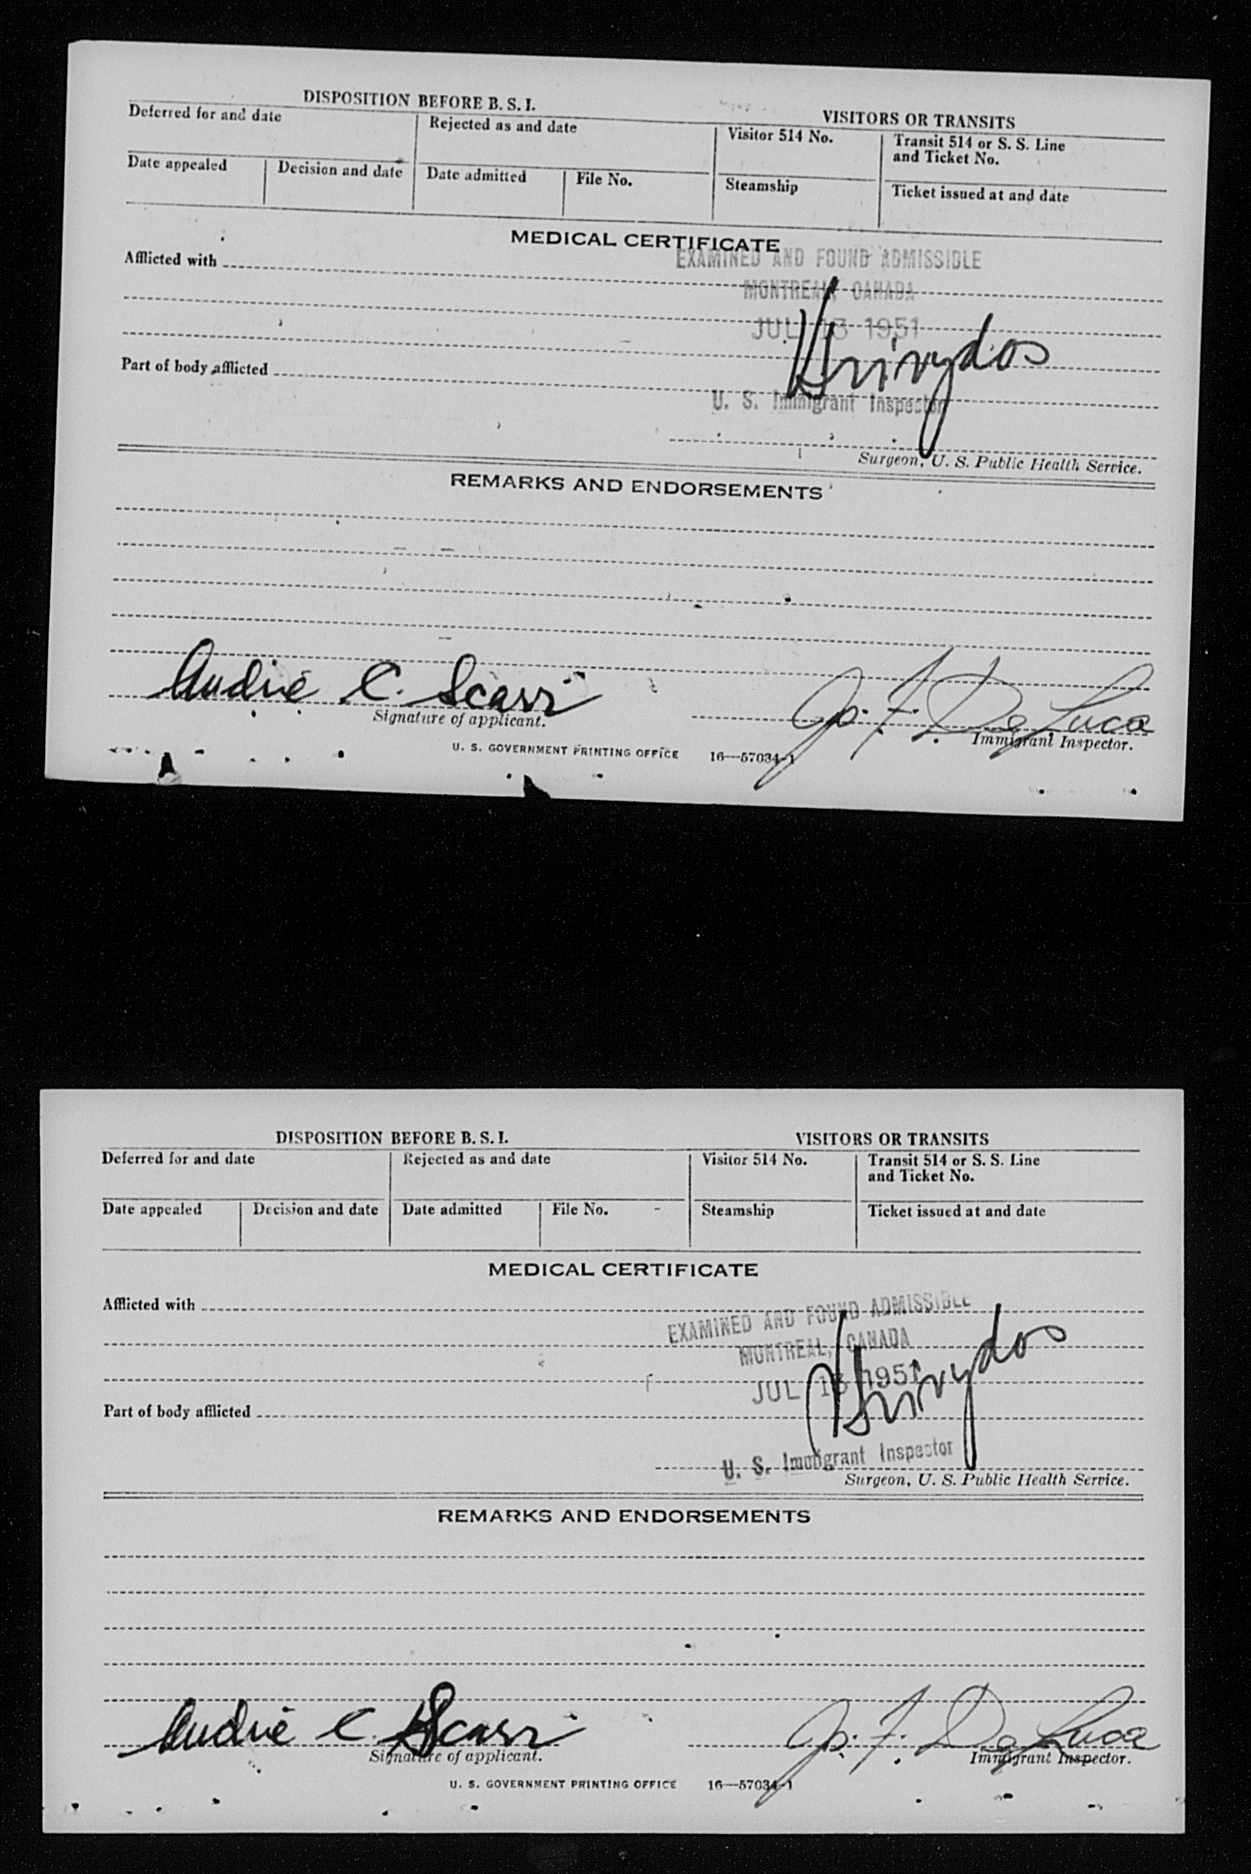 DISPOSITION BEFORE B. S. I.
VISITORS OR TRANSITS
Deferred for and date
Rejected as and date
Visitor 514 No.
Transit 514 or S. S. Line
and Ticket No.
Date appealed
Decision and date
Date admitted
File No.
Steamship
Ticket issued at and date
MEDICAL CERTIFICATE
Afflicted with
EXAMINED AND FOUND ADMISSIBLE
MONTREAL, CANADA
JUL 13 1951
Part of body afflicted
U. S. Immigrant Inspector
Surgeon, U. S. Public Health Service.
REMARKS AND ENDORSEMENTS
André C. Scarr
J. F. De Luca
Signature of applicant.
Immigrant Inspector.
U. S. GOVERNMENT PRINTING OFFICE 16—57034-1
DISPOSITION BEFORE B. S. I.
VISITORS OR TRANSITS
Deferred for and date
Rejected as and date
Visitor 514 No.
Transit 514 or S. S. Line
and Ticket No.
Date appealed
Decision and date
Date admitted
File No.
Steamship
Ticket issued at and date
MEDICAL CERTIFICATE
Afflicted with
EXAMINED AND FOUND ADMISSIBLE
MONTREAL, CANADA
JUL 13 1951
Part of body afflicted
U. S. Immigrant Inspector
Surgeon, U. S. Public Health Service.
REMARKS AND ENDORSEMENTS
André C. Scarr
J. F. De Luca
Signature of applicant.
Immigrant Inspector.
U. S. GOVERNMENT PRINTING OFFICE 16—57034-1